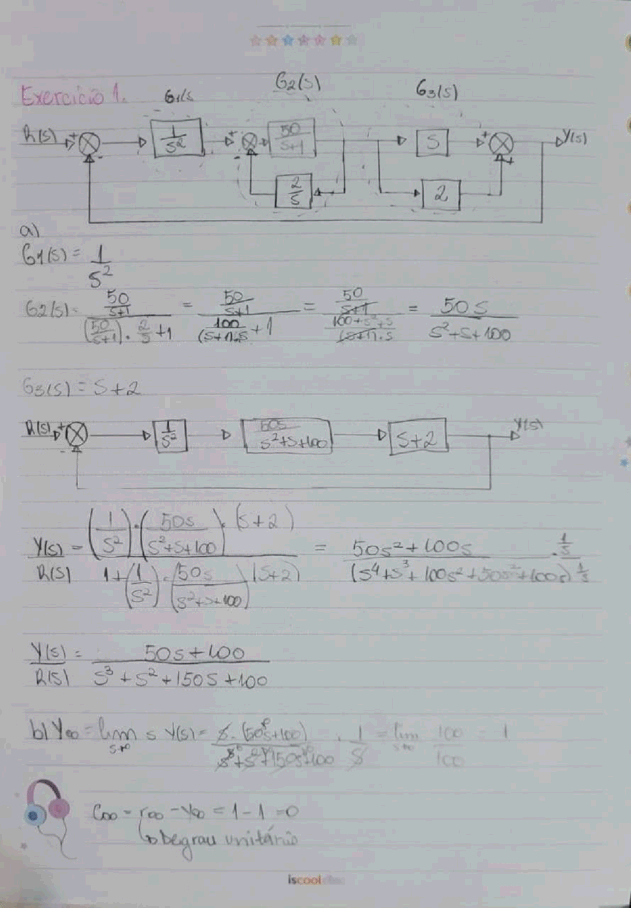 Exercício 1.
G1(s) G2(s) G3(s)
R(s) + - 1/s² + - 50/s+1 s + + Y(s)
2/s 2
a)
G1(s) = 1/s²
G2(s) = (50/s+1)/((50/s+1)·2/s+1) = (50/s+1)/(100/(s+1)·s+1) = (50/s+1)/(100+s²+s/(s+1)·s) = 50s/s²+s+100
G3(s) = s+2
R(s) + - 1/s² 50s/s²+s+100 s+2 Y(s)
Y(s)/R(s) = (1/s²)·(50s/s²+s+100)·(s+2)/1+(1/s²)·(50s/s²+s+100)(s+2) = 50s²+100s/(s⁴+s³+100s²+50s²+100s) · 1/s / 1/s
Y(s)/R(s) = 50s+100/s³+s²+150s+100
b) Y∞ = lim s→0 s Y(s) = s·(50s⁰+100)/s³⁰+s²⁰+150s⁰+100 · 1/s = lim s→0 100/100 = 1
e∞ = r∞ - y∞ = 1-1 = 0
↳ Degrau unitário
iscool